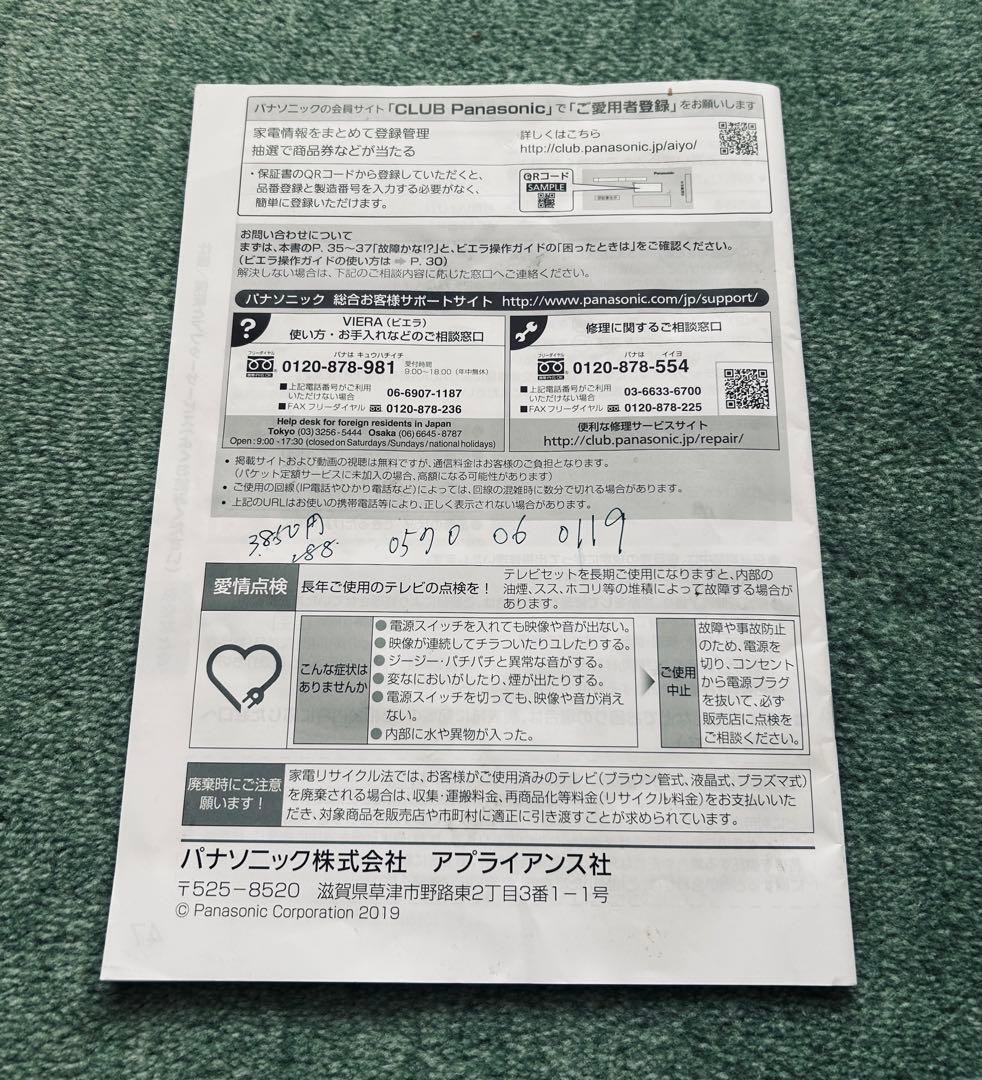 パナソニックの会員サイト「CLUB Panasonic」で「ご愛用者登録」をお願いします
家電情報をまとめて登録管理
抽選で商品券などが当たる
詳しくはこちら
http://club.panasonic.jp/aiyo/
・保証書のQRコードから登録していただくと、
品番登録と製造番号を入力する必要がなく、
簡単に登録いただけます。
QRコード
SAMPLE
Panasonic
お問い合わせについて
まずは、本書のP. 35〜37「故障かな!?」と、ビエラ操作ガイドの「困ったときは」をご確認ください。
(ビエラ操作ガイドの使い方は ➡ P. 30)
解決しない場合は、下記のご相談内容に応じた窓口へご連絡ください。
パナソニック 総合お客様サポートサイト http://www.panasonic.com/jp/support/
?
VIERA(ビエラ)
使い方・お手入れなどのご相談窓口
フリーダイヤル
パナは キュウハチイチ
0120-878-981
受付時間
9:00〜18:00(年中無休)
■上記電話番号がご利用
いただけない場合
06-6907-1187
■FAX フリーダイヤル
0120-878-236
Help desk for foreign residents in Japan
Tokyo (03) 3256-5444 Osaka (06) 6645-8787
Open : 9:00 - 17:30 (closed on Saturdays /Sundays / national holidays)
修理に関するご相談窓口
フリーダイヤル
パナは イイヨ
0120-878-554
■上記電話番号がご利用
いただけない場合
03-6633-6700
■FAX フリーダイヤル
0120-878-225
便利な修理サービスサイト
http://club.panasonic.jp/repair/
• 掲載サイトおよび動画の視聴は無料ですが、通信料金はお客様のご負担となります。
(パケット定額サービスに未加入の場合、高額になる可能性があります)
• ご使用の回線(IP電話やひかり電話など)によっては、回線の混雑時に数分で切れる場合があります。
• 上記のURLはお使いの携帯電話等により、正しく表示されない場合があります。
3,850円
0570 06 0119
愛情点検
長年ご使用のテレビの点検を!
テレビセットを長期ご使用になりますと、内部の
油煙、スス、ホコリ等の堆積によって故障する場合が
あります。
こんな症状は
ありませんか
●電源スイッチを入れても映像や音が出ない。
●映像が連続してチラついたりユレたりする。
●ジージー・パチパチと異常な音がする。
●変なにおいがしたり、煙が出たりする。
●電源スイッチを切っても、映像や音が消え
ない。
●内部に水や異物が入った。
ご使用
中止
故障や事故防止
のため、電源を
切り、コンセント
から電源プラグ
を抜いて、必ず
販売店に点検を
ご相談ください。
廃棄時にご注意
願います!
家電リサイクル法では、お客様がご使用済みのテレビ(ブラウン管式、液晶式、プラズマ式)
を廃棄される場合は、収集・運搬料金、再商品化等料金(リサイクル料金)をお支払いいた
だき、対象商品を販売店や市町村に適正に引き渡すことが求められています。
パナソニック株式会社 アプライアンス社
〒525-8520 滋賀県草津市野路東2丁目3番1-1号
© Panasonic Corporation 2019